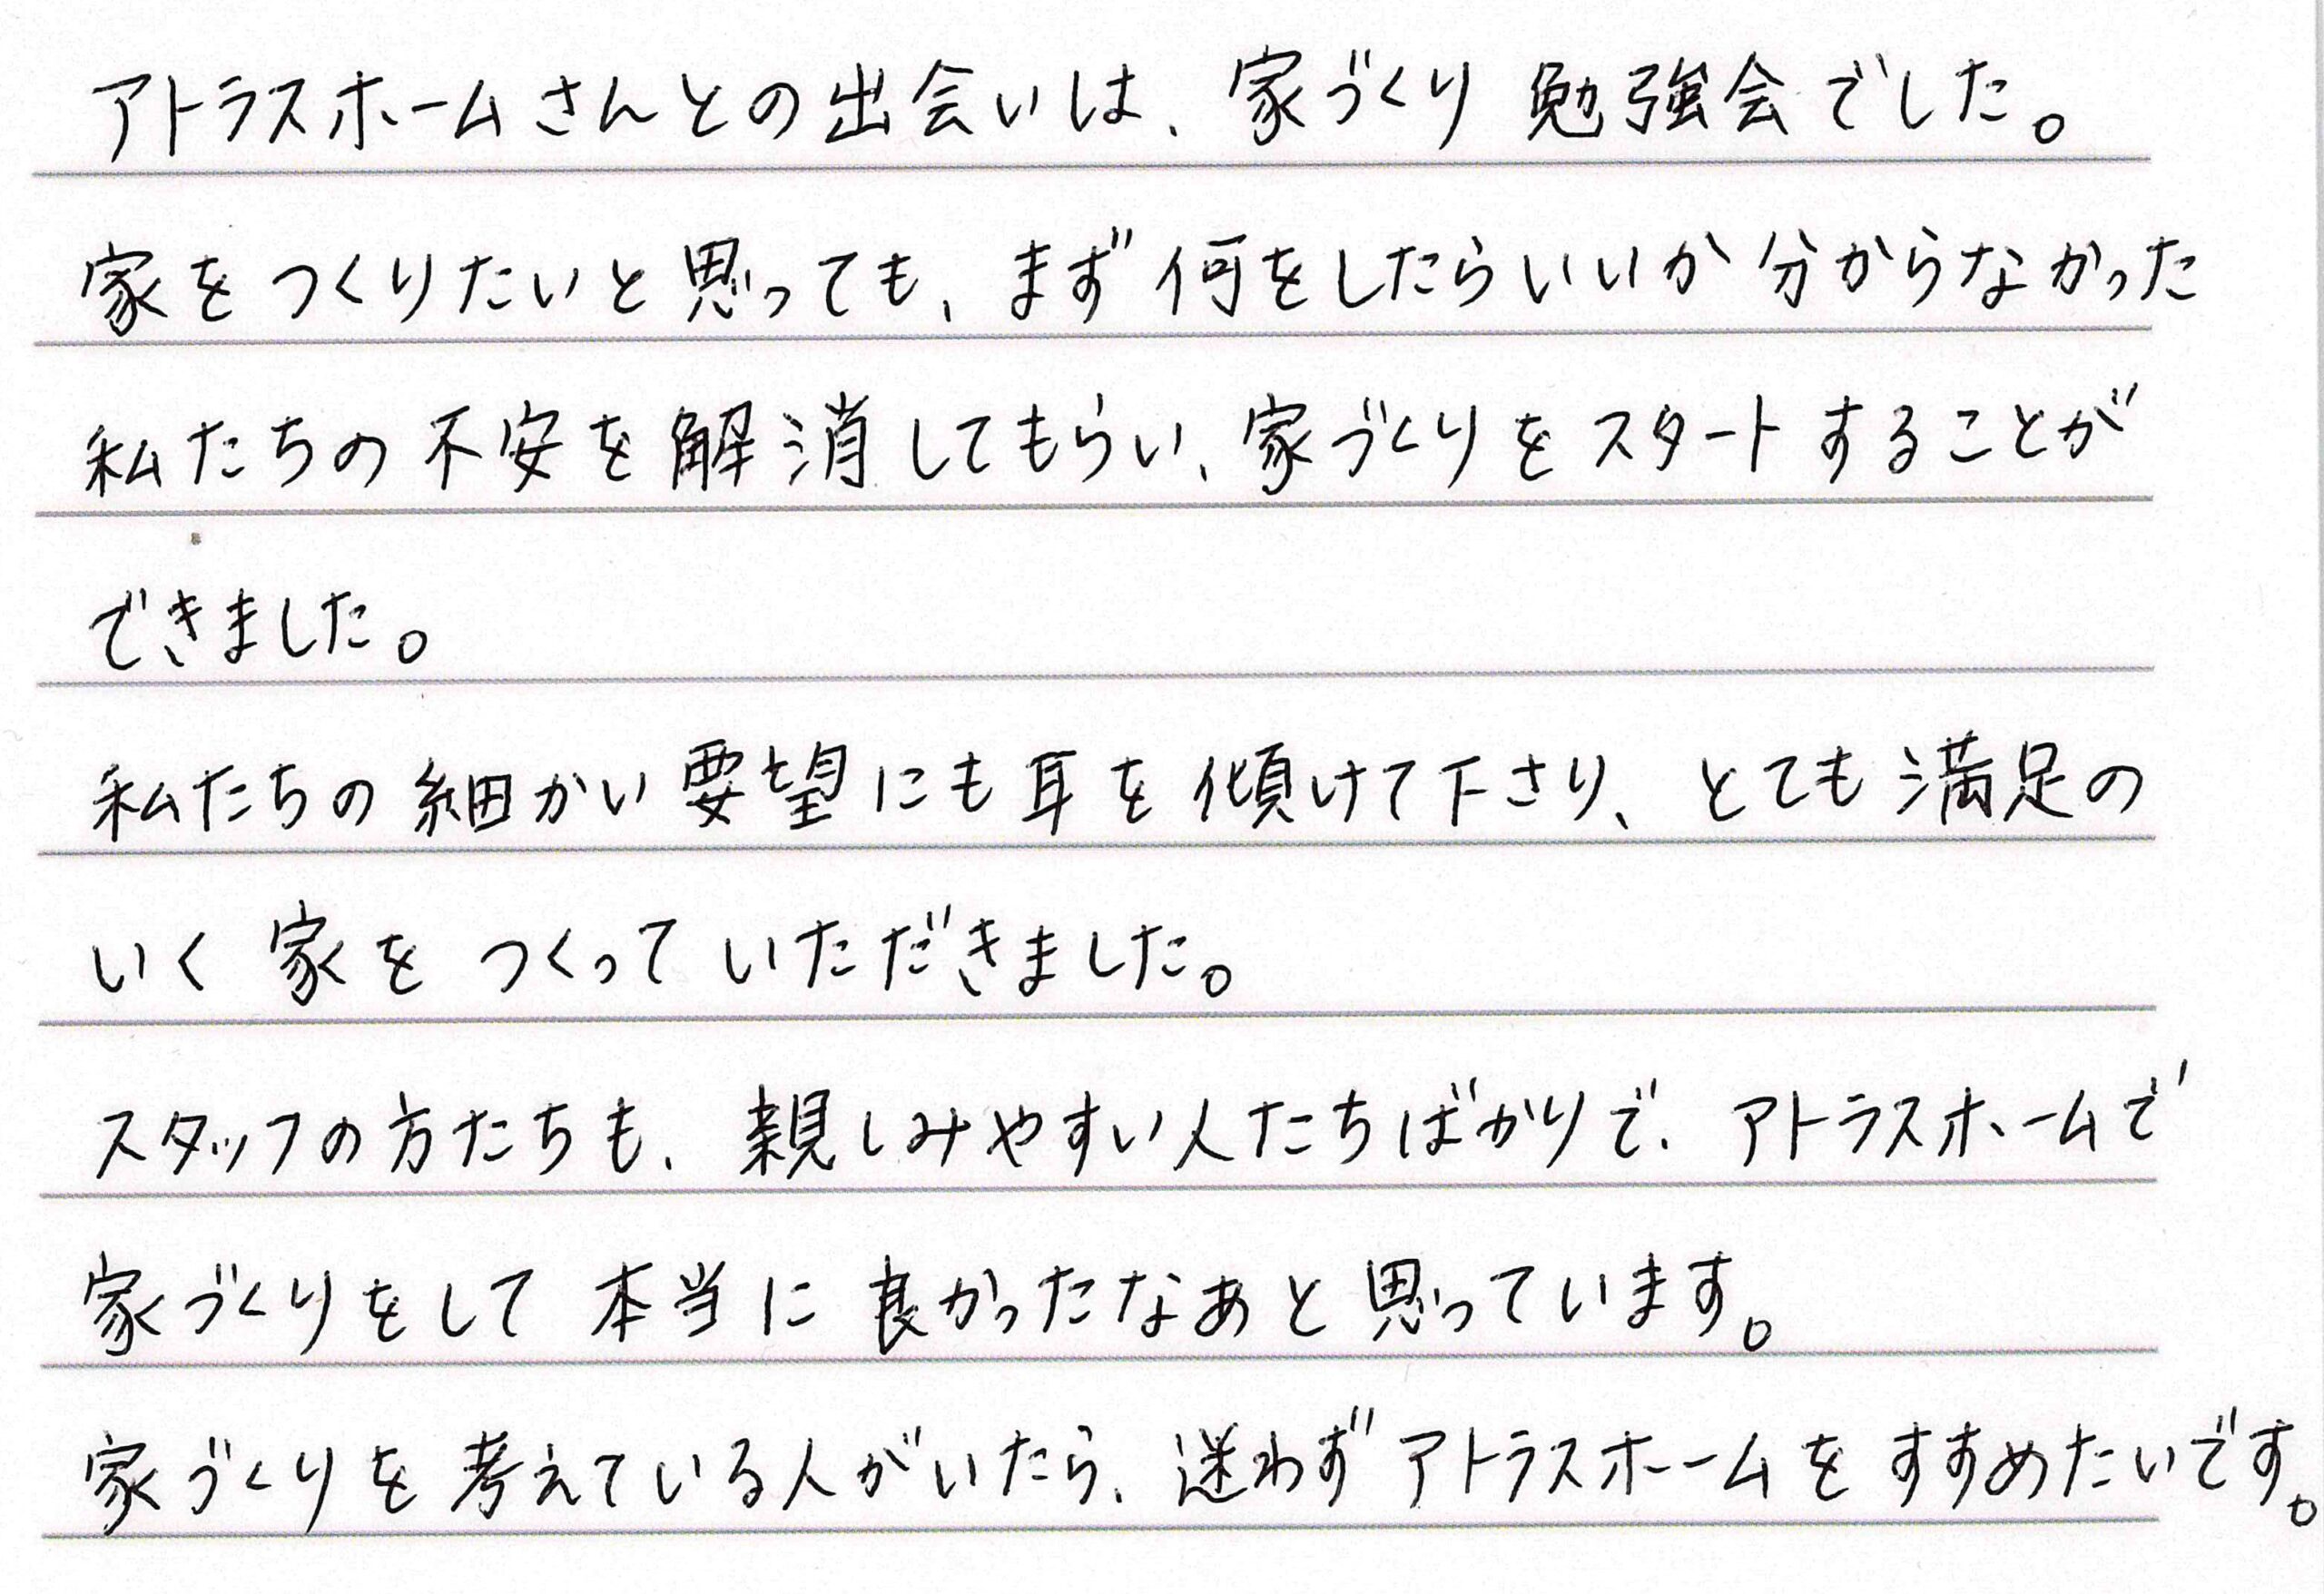 アトラスホームさんとの出会いは、家づくり勉強会でした。
家をつくりたいと思っても、まず何をしたらいいか分からなかった
私たちの不安を解消してもらい、家づくりをスタートすることが
できました。
私たちの細かい要望にも耳を傾けて下さり、とても満足の
いく家をつくっていただきました。
スタッフの方たちも、親しみやすい人たちばかりで、アトラスホームで
家づくりをして本当に良かったなあと思っています。
家づくりを考えている人がいたら、迷わずアトラスホームをすすめたいです。